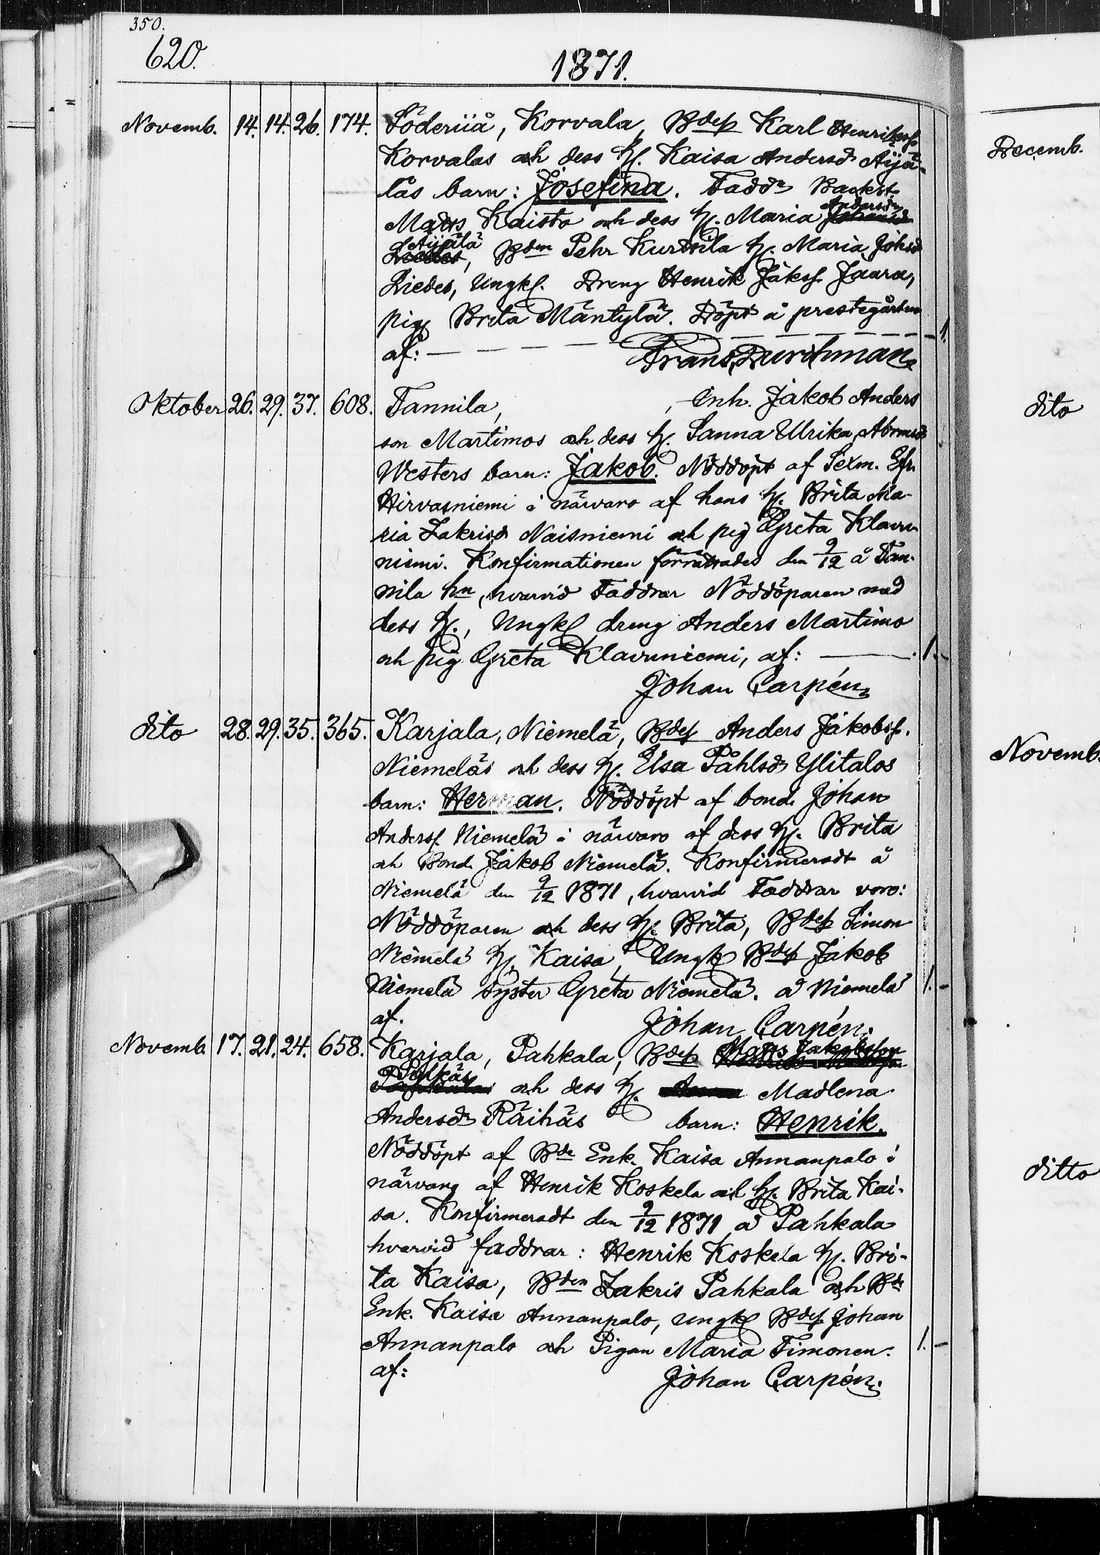 350.
620.
1871.
Novemb. 14. 14. 26. 174. Söderuå, Korvala, Bdess Karl Henrikss
Korvalas och dess h. Kaisa Andersdr Äijä-
läs barn: Josefina. Fadd: Backst
Matts Kaisto och dess h. Maria Andersdr
Äijälä, Bdn Pehr Kurttila h. Maria Johsd
Liedes, Ungkl. Dreng Henrik Jakss Jaara,
pig. Brita Mäntylä. Döpt å prestgården
af: Frans Durchman. 1.
Oktober 26. 29. 37. 608. Tannila, Inh. Jakob Anders
son Martimos och dess h. Sanna Ulrika Abramsdr
Westers barn: Jakob. Nöddöpt af Sexm.
Hirvasniemi i närvaro af hans h. Brita Ma-
ria Zakrisdr Naisniemi och pig Greta Klavu-
niemi. Konfirmationen förrättades den 9/12 å Tan-
nila hn, hvarvid Faddrar Nöddöparen med
dess h., Ungkl dreng Anders Martimo
och pig Greta Klavuniemi, af: 1.
Johan Carpén.
dito 28. 29. 35. 365. Karjala, Niemelä, Bdess Anders Jakobss.
Niemeläs och dess h. Elsa Påhlsdr Ylitalos
barn: Herman. Nöddöpt af bond. Johan
Anderss. Niemelä i närvaro af dess h. Brita
och Bond. Jakob Niemelä. Konfirmeradt å
Niemelä den 9/12 1871, hvarvid Faddrar voro:
Nöddöparen och dess h. Brita, Bdess Simon
Niemelä h. Kaisa, Ungk Bdess Jakob
Niemelä syster Greta Niemelä. å Niemelä 1.
af. Johan Carpén.
Novemb. 17. 21. 24. 658. Karjala, Pahkala, Bdess Matts Jakobsson
och dess h. Madlena
Andersdr Räihäs barn: Henrik.
Nöddöpt af Bde Enk. Kaisa Annanpalo i
närvaro af Henrik Koskela och h. Brita Kai-
sa. Konfirmeradt den 9/12 1871 å Pahkala
hvarvid faddrar: Henrik Koskela h. Bri-
ta Kaisa, Bden Zakris Pahkala och Bde
Enk. Kaisa Annanpalo, ungkl Bdess Johan
Annanpalo och Pigan Maria Timonen. 1.
af: Johan Carpén.
Decemb.
dito
Novemb.
ditto